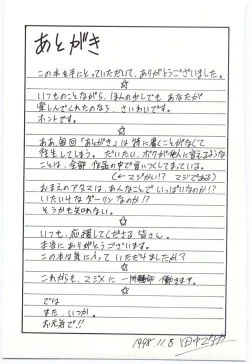 あとがき
この本を手にとっていただいて、ありがとうございました。
☆
いつものことながら、ほんの少しでも、あなたが
楽しんでくれたのなら、さいわいです。
ホントです。
☆
ああ、毎回「あとがき」は特に書くことがなくて
往生してしまう。だいたい、ボクが他人に言えるような
ことは、全部、作品の中で言いつくしてまっている。
(←マジかい!? マジである)
おまえのアタマは、あんなことでいっぱいなのか!?
いたいけなダーリンなのか!?
そうかも知れない。
☆
いつも、応援してくださる皆さん。
本当にありがとうございます。
この本は気に入っていただけましたか?
☆
これからも、マジメに一所懸命働きます。
☆
では
また、いつか。
お元気で!!
1998.11.8